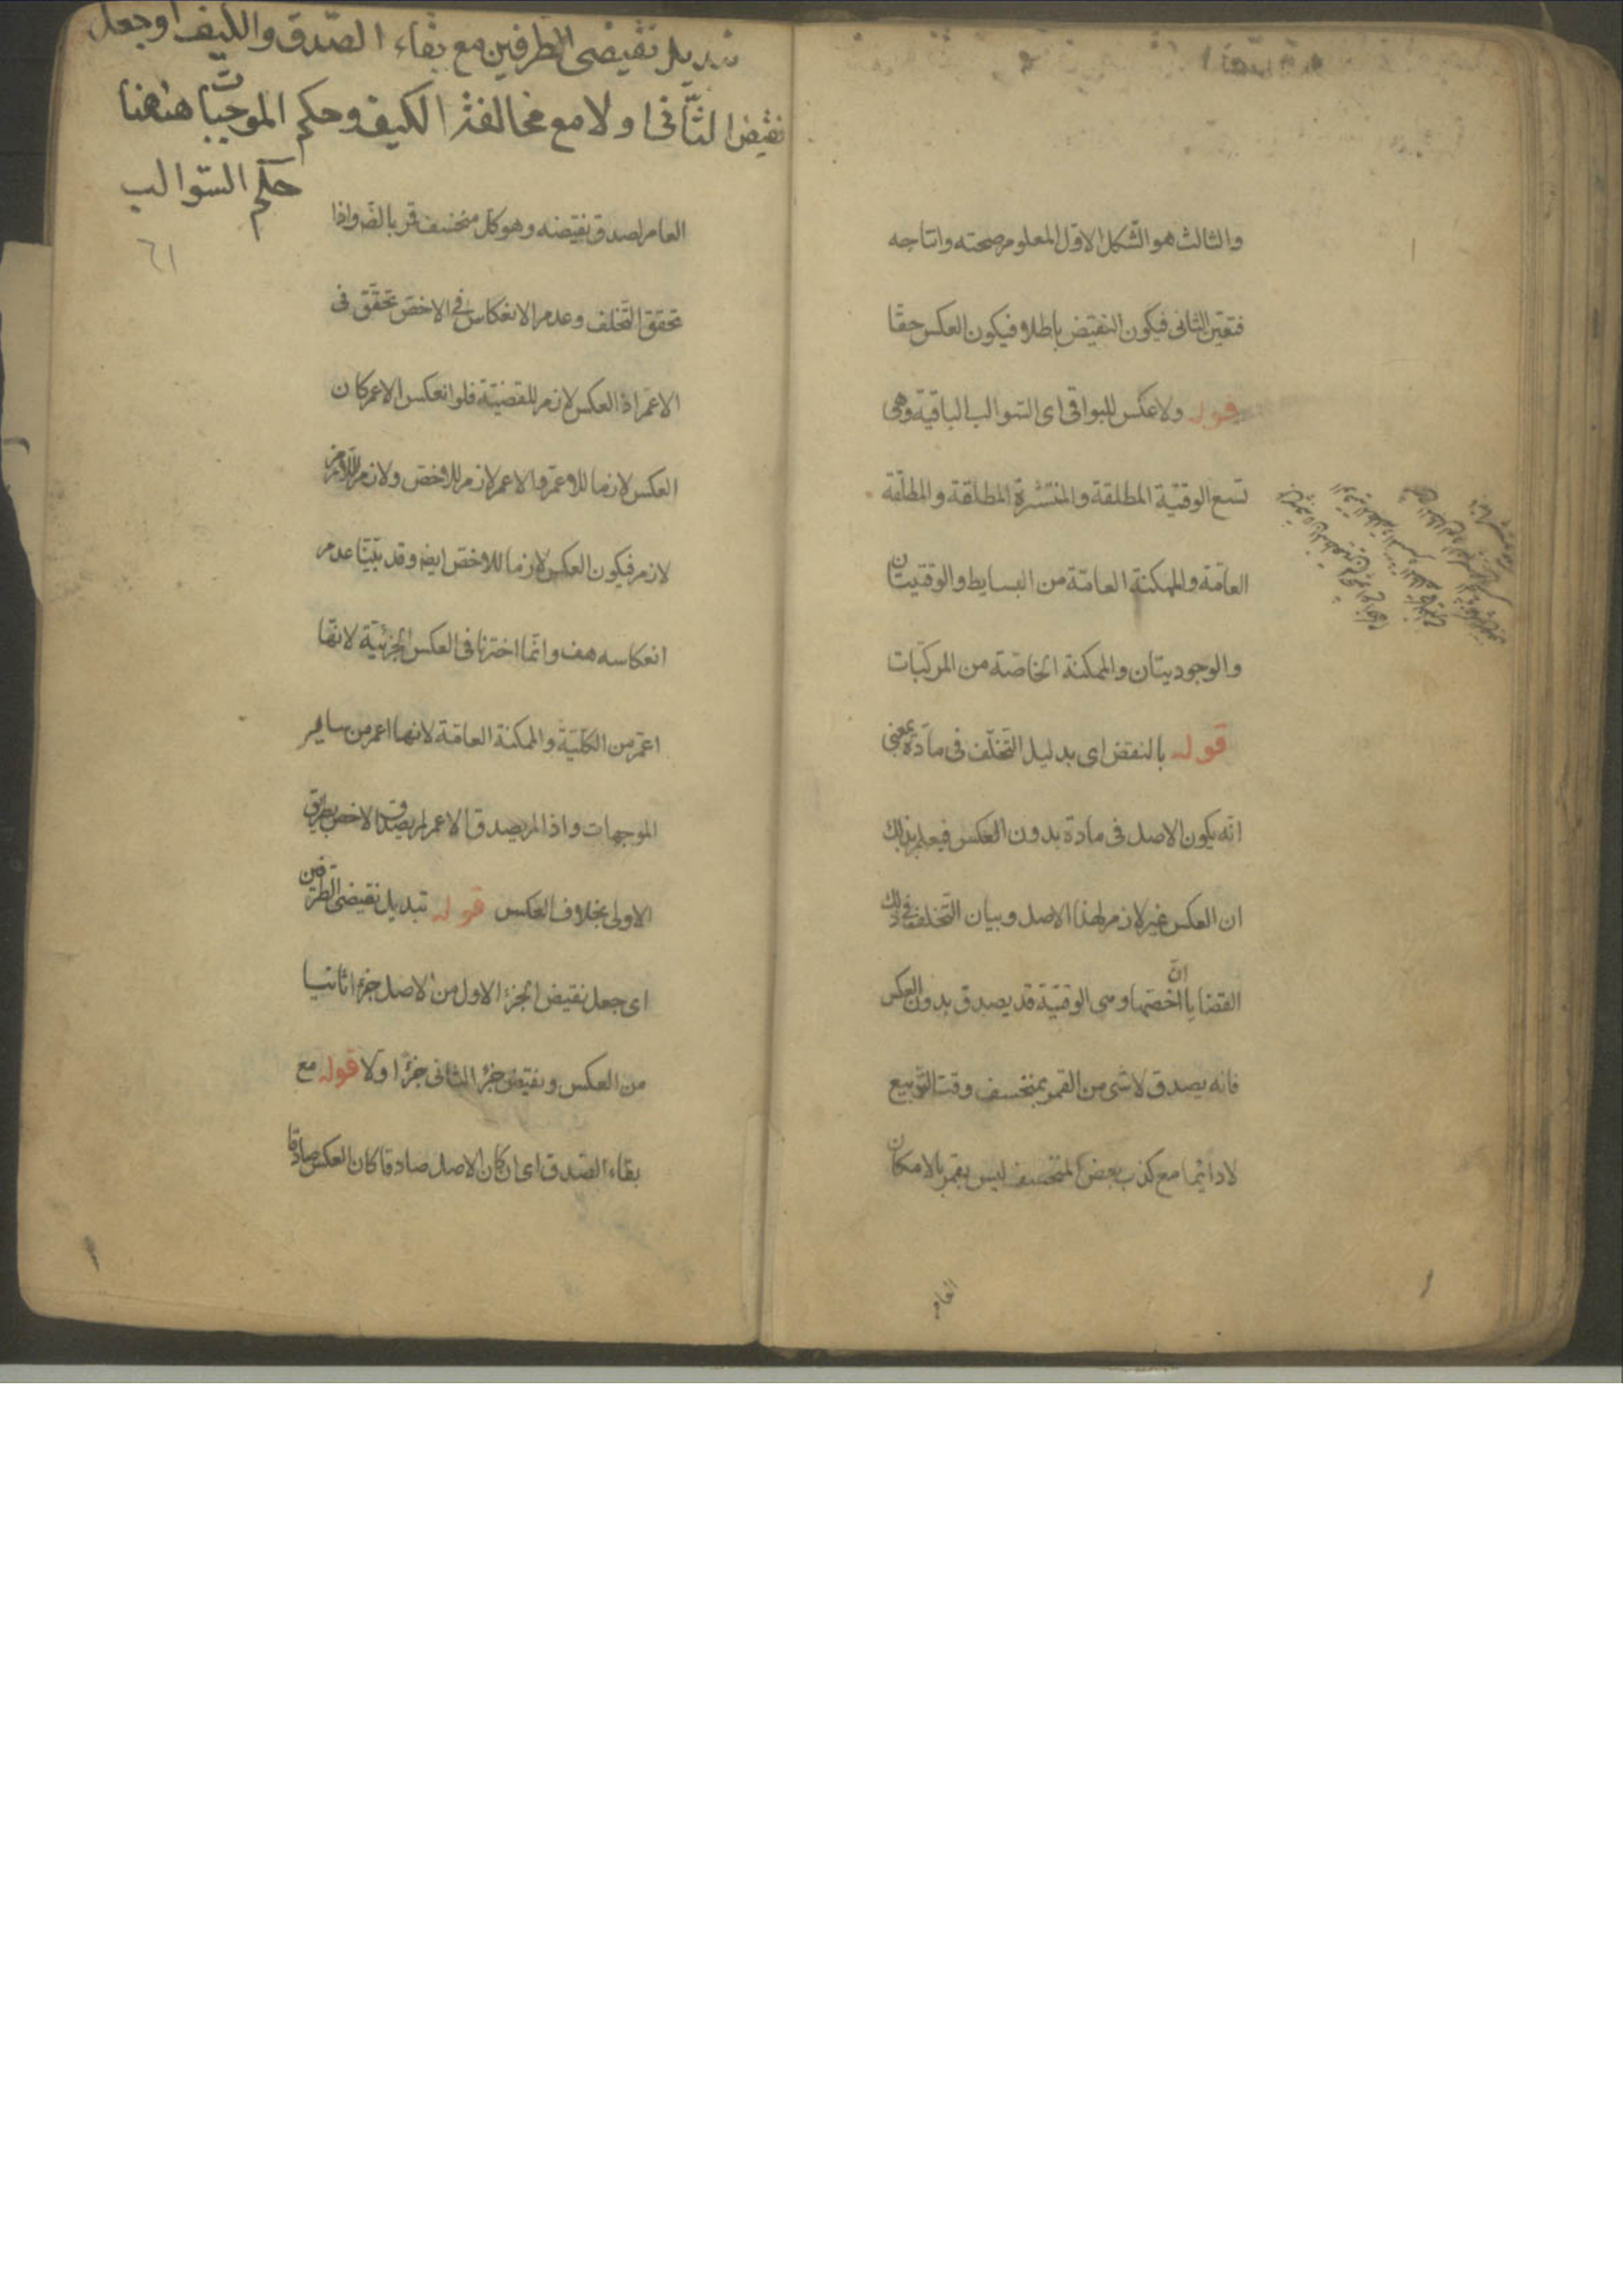 والثالث هو الشكل الاول المعلوم صحته وانتاجه
فتعين الثانى فيكون النقيض باطلا فيكون العكس حقا
قوله ولا عكس للبواقى اى السوالب الباقية وهى
تسع الوقتية المطلقة والمنتشرة المطلقة والمطلقة
العامة والممكنة العامة من البسايط والوقتيتان
والوجوديتان والممكنة الخاصة من المركبات
قوله بالنقض اى بدليل التخلف فى مادة بمعنى
انه يكون الاصل فى مادة بدون العكس فيعلم بذلك
ان العكس غير لازم لهذا الاصل وبيان التخلف فى ذلك
القضايا ان اخصها وهى الوقتية قد يصدق بدون العكس
فانه يصدق لا شى من القمر بمنخسف وقت التربيع
لا دائما مع كذب بعض المنخسف ليس بقمر بالامكان
العام
تبديل نقيضى الطرفين مع بقاء الصدق والكيف او جعل
نقيض الثانى اولا مع مخالفة الكيف وحكم الموجبات ههنا
حكم السوالب
٦١
العام لصدق نقيضه وهو كل منخسف قمر بالضّ واذا
تحقق التخلف وعدم الانعكاس فى الاخص تحقق فى
الاعم اذ العكس لازم للقضية فلو انعكس الاعم كان
العكس لازما للاعم والاعم لازم للاخص ولازم اللازم
لازم فيكون العكس لازما للاخص ايضا وقد بينا عدم
انعكاسه هف وانما اخترنا فى العكس الجزئية لانها
اعم من الكلية والممكنة العامة لانها اعم من ساير
الموجهات واذا لم يصدق الاعم لم يصدق الاخص بطريق
الاولى بخلاف العكس قوله تبديل نقيضى الطرفين
اى جعل نقيض الجزء الاول من الاصل جزءا ثانيا
من العكس ونقيض جزء الثانى جزءا اولا قوله مع
بقاء الصدق اى ان كان الاصل صادقا كان العكس صادقا